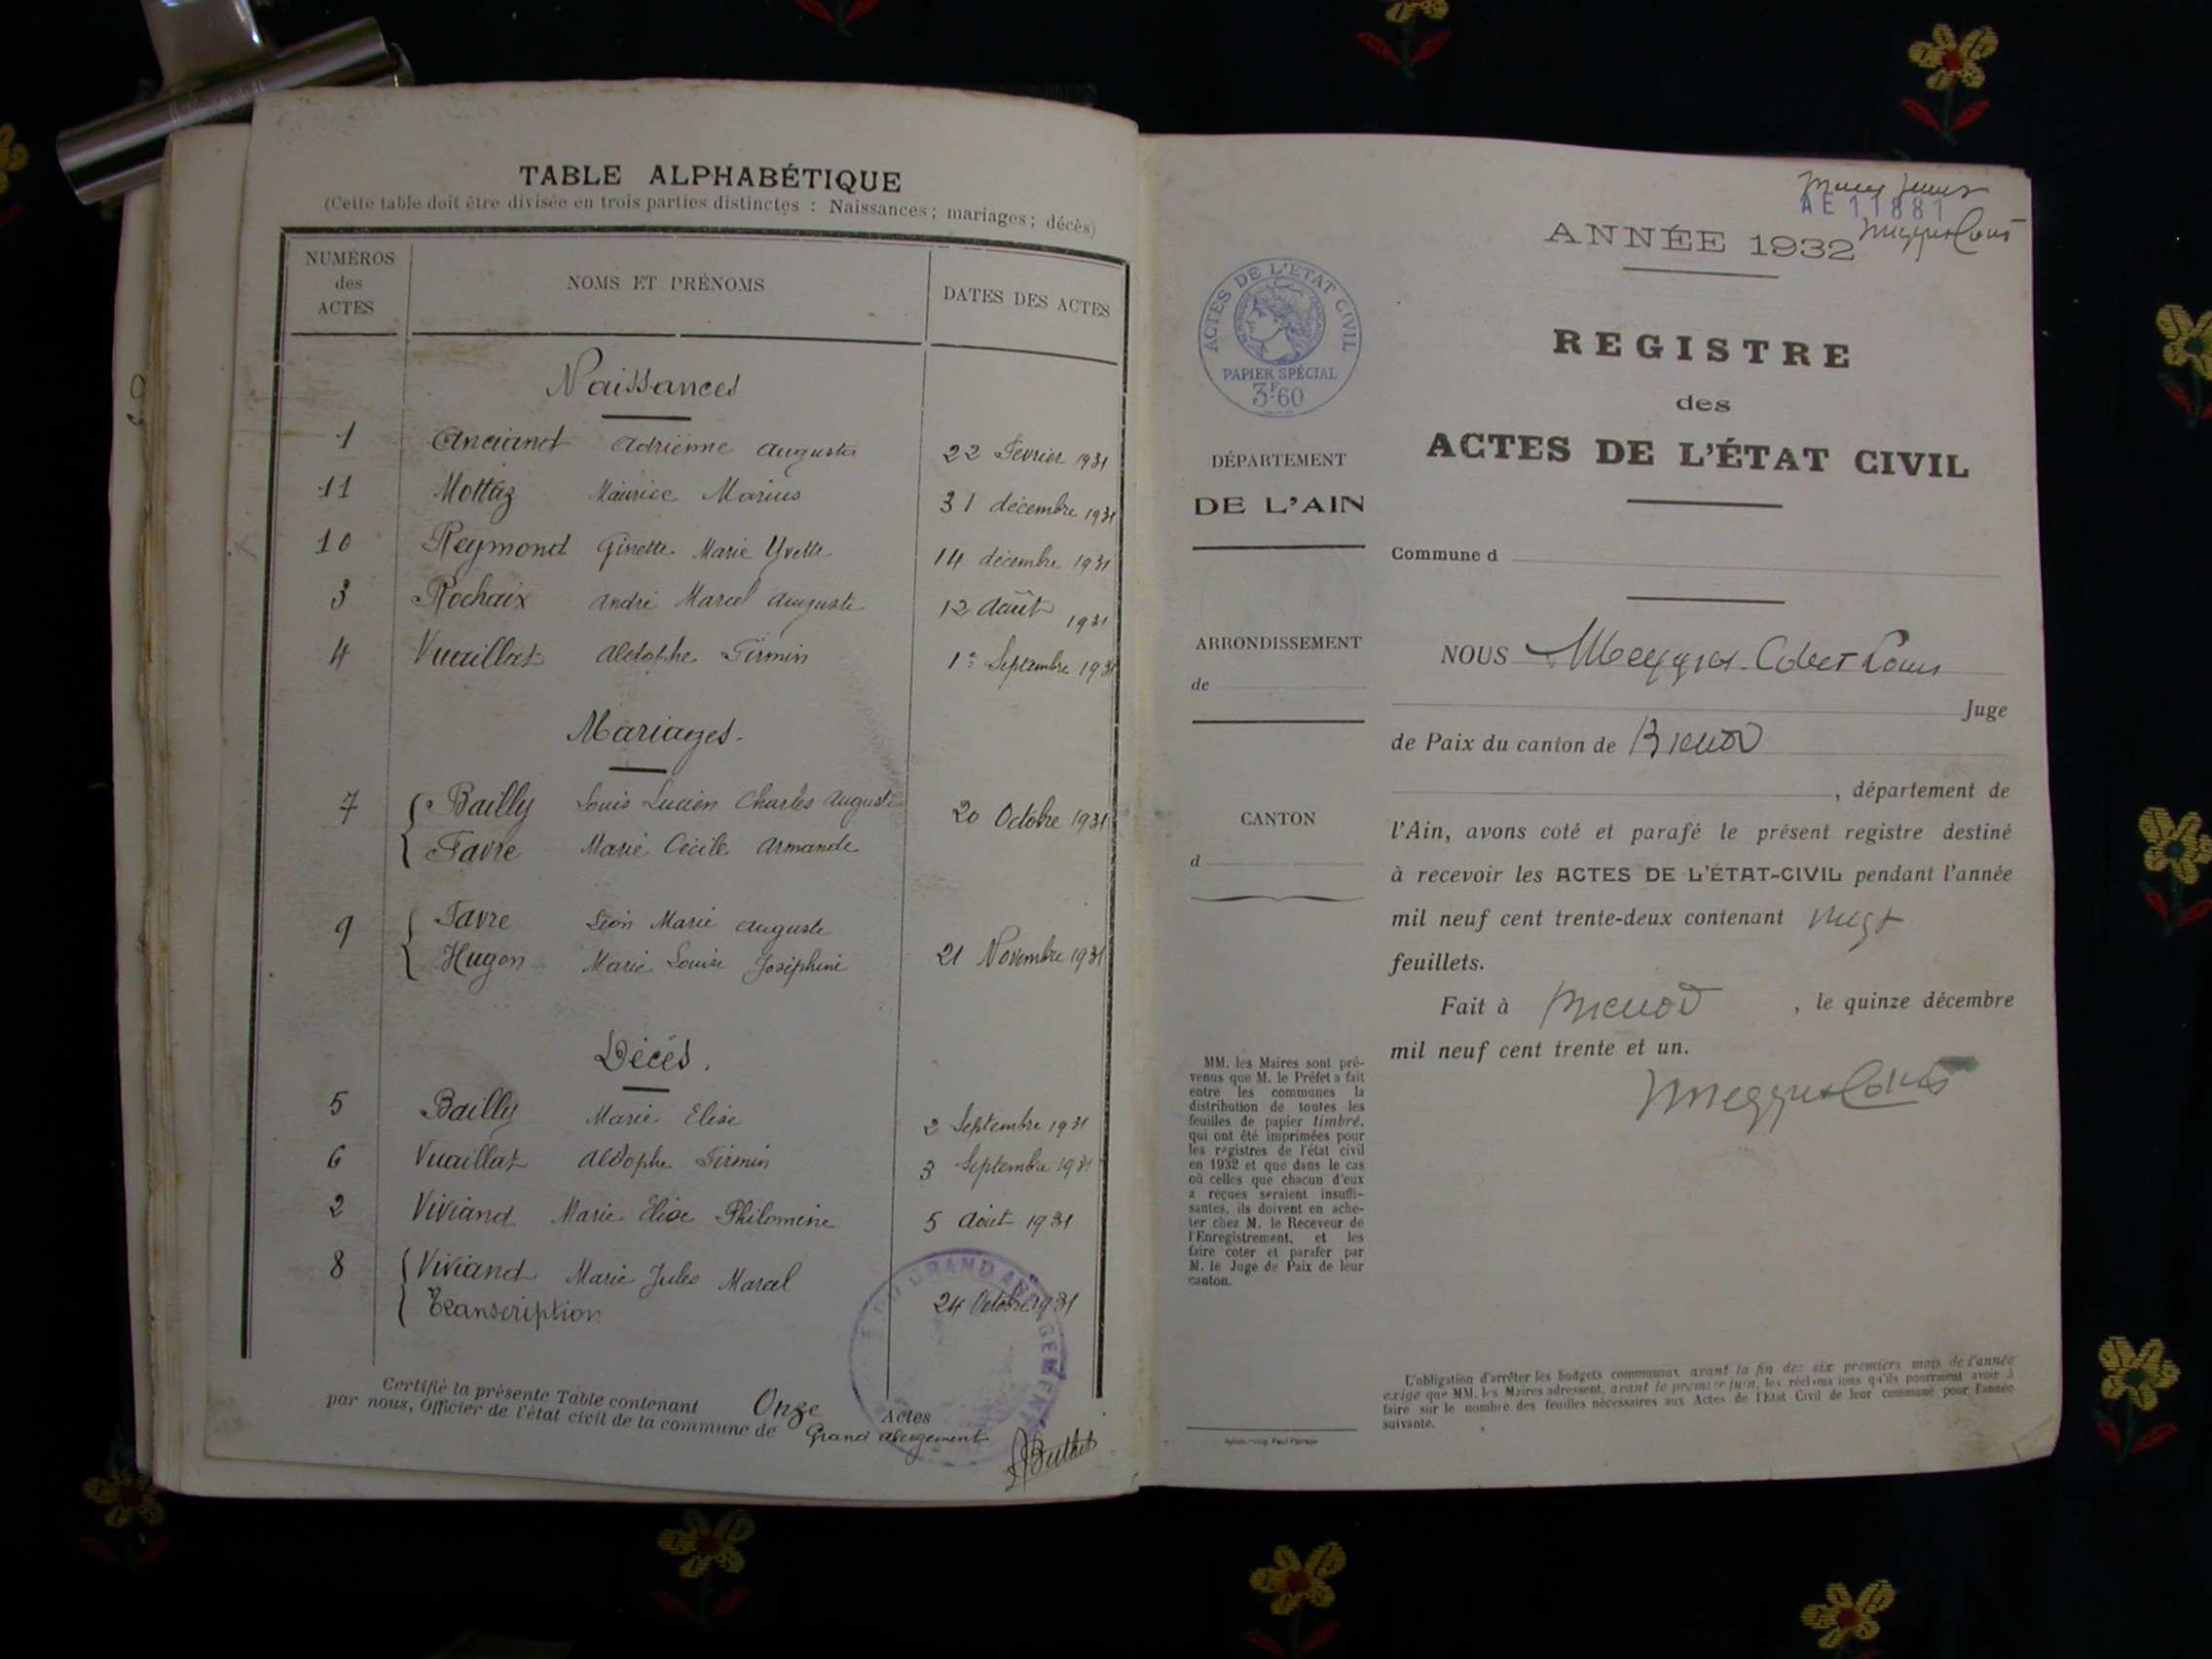 TABLE ALPHABÉTIQUE
(Cette table doit être divisée en trois parties distinctes : Naissances ; mariages ; décès)
NUMÉROS des ACTES
NOMS ET PRÉNOMS
DATES DES ACTES
Naissances
1 Ancianet Adrienne Augusta 22 Février 1931
11 Mottaz Maurice Marius 31 décembre 1931
10 Reymond Ginette Marie Yvette 14 décembre 1931
3 Rochaix André Marcel Auguste 12 Août 1931
4 Vuaillat Aldophe Firmin 1er Septembre 1931
Mariages.
7 Bailly Louis Lucien Charles Auguste 20 Octobre 1931
Favre Marie Cécile Armande
9 Favre Léon Marie Auguste
Hugon Marie Louise Joséphine 21 Novembre 1931
Décés.
5 Bailly Marie Elise 2 Septembre 1931
6 Vuaillat Aldophe Firmin 3 Septembre 1931
2 Viviand Marie Elise Philomène 5 Août 1931
8 Viviand Marie Jules Marcel
Transcription 24 Octobre 1931
GRAND ABERGEMENT
Certifié la présente Table contenant Onze Actes
par nous, Officier de l'état civil de la commune de Grand Abergement
AE 11881
ANNÉE 1932
ACTES DE L'ETAT CIVIL
PAPIER SPÉCIAL
3F60
REGISTRE
des
ACTES DE L'ÉTAT CIVIL
DÉPARTEMENT
DE L'AIN
Commune d
ARRONDISSEMENT
de
NOUS Louis
Juge
de Paix du canton de Brenod
, département de
l'Ain, avons coté et parafé le présent registre destiné
à recevoir les ACTES DE L'ÉTAT-CIVIL pendant l'année
mil neuf cent trente-deux contenant vingt
feuillets.
Fait à Brenod , le quinze décembre
mil neuf cent trente et un.
CANTON
d
MM. les Maires sont pré-
venus que M. le Préfet a fait
entre les communes la
distribution de toutes les
feuilles de papier timbré,
qui ont été imprimées pour
les registres de l'état civil
en 1932 et que dans le cas
où celles que chacun d'eux
a reçues seraient insuffi-
santes, ils doivent en ache-
ter chez M. le Receveur de
l'Enregistrement, et les
faire coter et parafer par
M. le Juge de Paix de leur
canton.
L'obligation d'arrêter les budgets communaux avant la fin des six premiers mois de l'année
exige que MM. les Maires adressent, avant le premier juin, les réclamations qu'ils pourraient avoir à
faire sur le nombre des feuilles nécessaires aux Actes de l'Etat Civil de leur commune pour l'année
suivante.